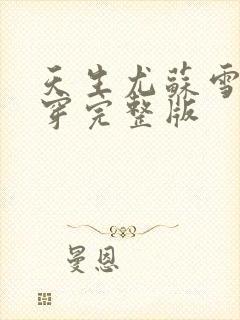 天生尤蘇雪
穿完整版
曼恩